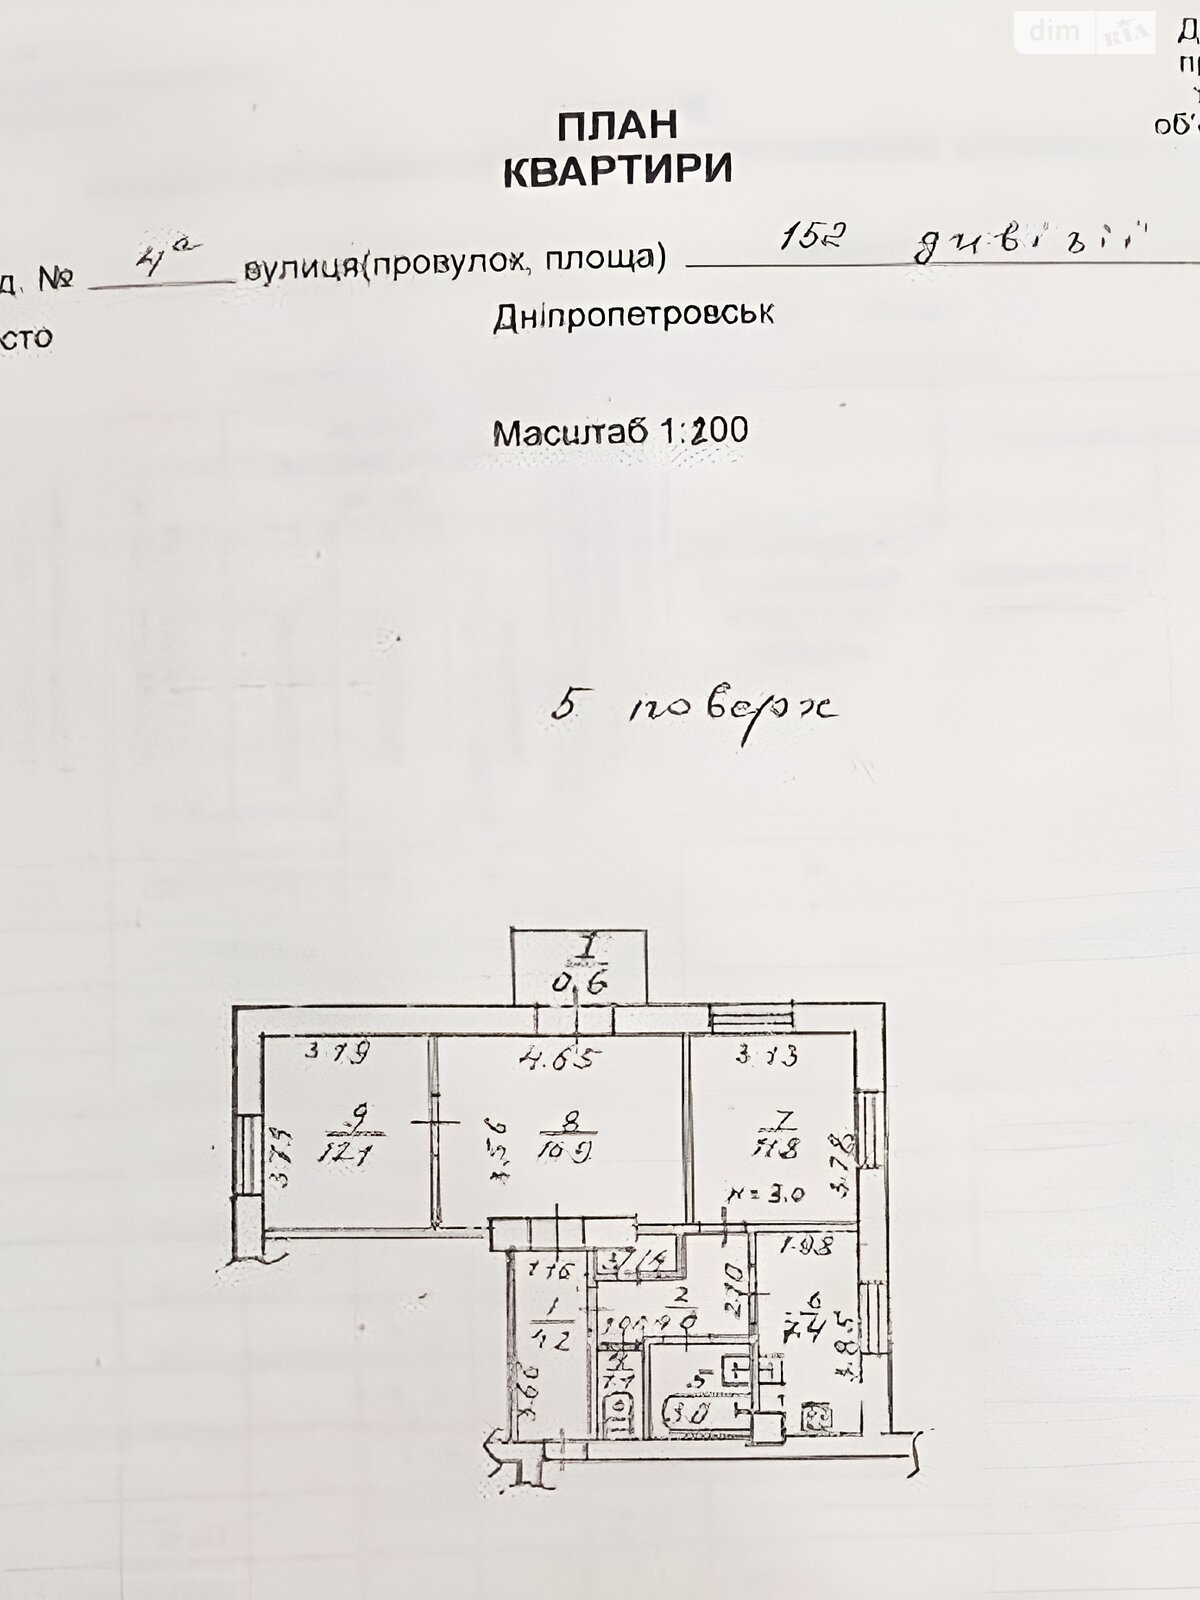 dim RIA
ПЛАН
КВАРТИРИ
д. № 4а вулиця(провулок, площа) 152 дивізії
сто Дніпропетровськ
Масштаб 1:200
5 поверх
I
0.6
3.19 4.65 3.13
9 8 7
12.1 16.9 11.8
3.79 3.56 3.78
н=3.0
1.16 3/1.4 1.98
1 2 2.70 6
4.2 7.4
3.85
3.66 5
3.0